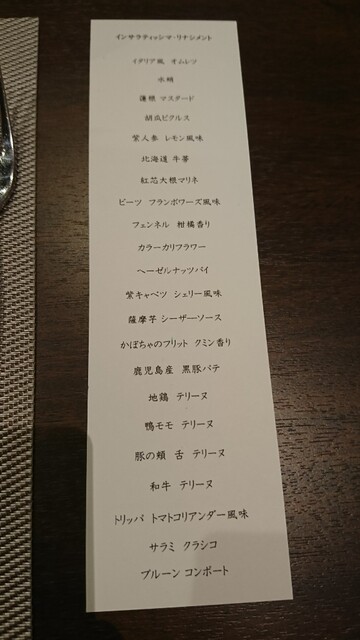 インサラティッシマ・リナシメント
イタリア風 オムレツ
水蛸
蓮根 マスタード
胡瓜ピクルス
紫人参 レモン風味
北海道 牛蒡
紅芯大根マリネ
ビーツ フランボワーズ風味
フェンネル 柑橘香り
カラーカリフラワー
ヘーゼルナッツパイ
紫キャベツ シェリー風味
薩摩芋 シーザーソース
かぼちゃのフリット クミン香り
鹿児島産 黒豚パテ
地鶏 テリーヌ
鴨モモ テリーヌ
豚の頬 舌 テリーヌ
和牛 テリーヌ
トリッパ トマトコリアンダー風味
サラミ クラシコ
プルーン コンポート